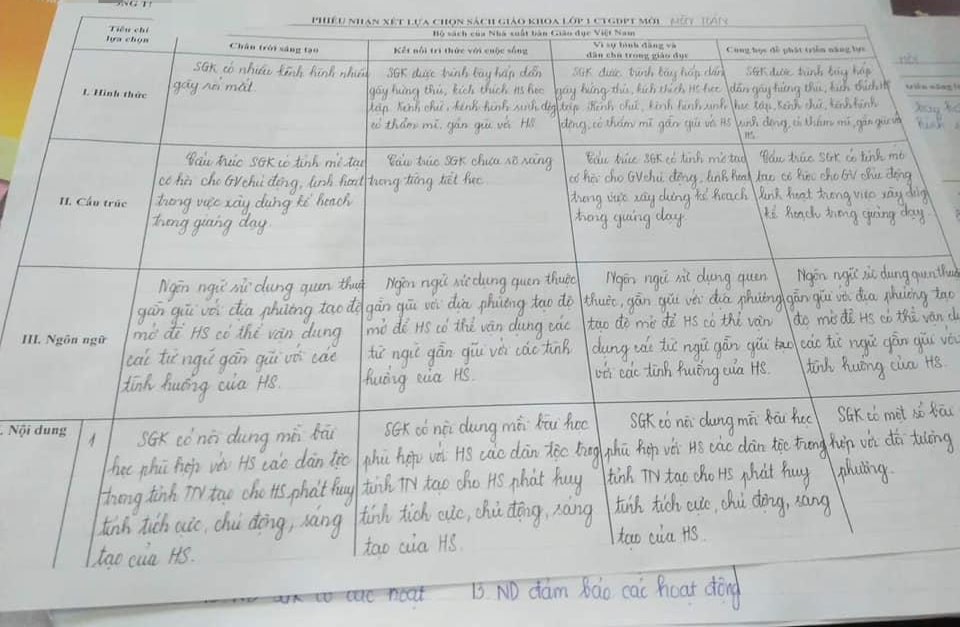 PHIẾU NHẬN XÉT LỰA CHỌN SÁCH GIÁO KHOA LỚP 1 CTGDPT MỚI MÔN TOÁN
Tiêu chí
lựa chọn
Bộ sách của Nhà xuất bản Giáo dục Việt Nam
Chân trời sáng tạo
Kết nối tri thức với cuộc sống
Vì sự bình đẳng và
dân chủ trong giáo dục
Cùng học để phát triển năng lực
I. Hình thức
SGK có nhiều kênh hình nhiều
gây rối mắt.
SGK được trình bày hấp dẫn
gây hứng thú, kích thích HS học
tập. Kênh chữ, kênh hình sinh động
có thẩm mĩ, gần gũi với HS
SGK được trình bày hấp dẫn
gây hứng thú, kích thích HS học
tập. Kênh chữ, kênh hình sinh
động, có thẩm mĩ gần gũi với HS
SGK được trình bày hấp
dẫn gây hứng thú, kích thích HS
học tập, Kênh chữ, kênh hình
sinh động, có thẩm mĩ, gần gũi với
HS.
II. Cấu trúc
Cấu trúc SGK có tính mở tạo
cơ hội cho GV chủ động, linh hoạt
trong việc xây dựng kế hoạch
trong giảng dạy.
Cấu trúc SGK chưa rõ ràng
trong từng tiết học.
Cấu trúc SGK có tính mở tạo
cơ hội cho GV chủ động, linh hoạt
trong việc xây dựng kế hoạch
trong giảng dạy.
Cấu trúc SGK có tính mở
tạo cơ hội cho GV chủ động
linh hoạt trong việc xây dựng
kế hoạch trong giảng dạy.
III. Ngôn ngữ
Ngôn ngữ sử dụng quen thuộc
gần gũi với địa phương tạo độ
mở để HS có thể vận dung
các từ ngữ gần gũi với các
tình huống của HS.
Ngôn ngữ sử dụng quen thuộc
gần gũi với địa phương tạo độ
mở để HS có thể vận dung các
từ ngữ gần gũi với các tình
huống của HS.
Ngôn ngữ sử dụng quen
thuộc, gần gũi với địa phương
tạo độ mở để HS có thể vận
dụng các từ ngữ gần gũi tạo
với các tình huống của HS.
Ngôn ngữ sử dụng quen thuộc
gần gũi với địa phương tạo
độ mở để HS có thể vận
các từ ngữ gần gũi với
tình huống của HS.
Nội dung
1
SGK có nội dung mỗi bài
học phù hợp với HS các dân tộc
trong tỉnh TN tạo cho HS phát huy
tính tích cực, chủ động, sáng
tạo của HS.
SGK có nội dung mỗi bài học
phù hợp với HS các dân tộc trong
tỉnh TN tạo cho HS phát huy
tính tích cực, chủ động, sáng
tạo của HS.
SGK có nội dung mỗi bài học
phù hợp với HS các dân tộc trong
tỉnh TN tạo cho HS phát huy
tính tích cực, chủ động, sáng
tạo của HS.
SGK có một số bài
hợp với đối tượng
phương.
các hoạt
13 ND đảm bảo các hoạt động